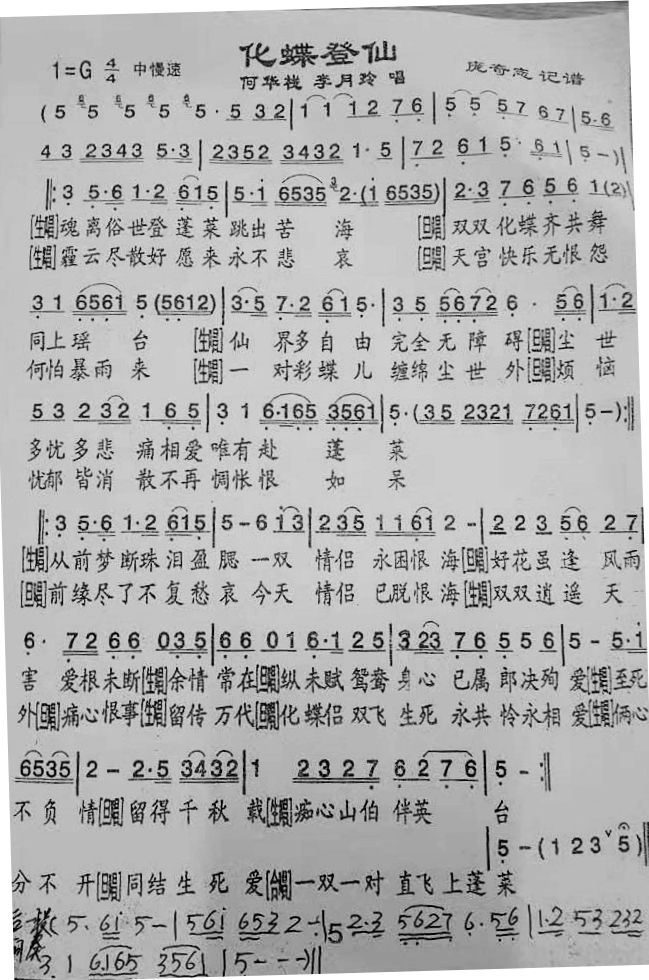 化蝶登仙
1=G 4/4 中慢速 何华栈 李月玲 唱 庞奇志 记谱
(5 5 5 5 5· 5 32|1 1 12 76|5 5 57 67|5·6
43 2343 5·3|2352 3432 1·5|72 61 5· 61|5 –)|
‖:3 5·6 1·2 615|5·i 6535 2·(i 6535)|2·3 76 56 1(2)|
[生唱]魂离俗世登蓬莱跳出苦海 [旦唱]双双化蝶齐共舞
[生唱]霾云尽散好愿来永不悲哀 [旦唱]天宫快乐无恨怨
31 6561 5 (5612)|3·5 7·2 61 5·|35 5672 6· 56|1·2
同上瑶台 [生唱]仙界多自由完全无障碍[旦唱]尘世
何怕暴雨来 [生唱]一对彩蝶儿缠绵尘世外[旦唱]烦恼
53 232 165|31 6·165 3561|5·(35 2321 7261|5 –):‖
多忧多悲痛相爱唯有赴蓬莱
忧郁皆消散不再惆怅恨如呆
‖:3 5·6 1·2 615|5 – 6 i3|235 1161 2 –|2 23 56 27|
[生唱]从前梦断珠泪盈腮一双情侣永困恨海[旦唱]好花虽逢风雨
[旦唱]前缘尽了不复愁哀今天情侣已脱恨海[生唱]双双逍遥天
6· 72 66 035|66 01 6·1 25|3 23 76 556|5 – 5·i|
害爱根未断[生唱]余情常在[旦唱]纵未赋鸳鸯身心已属郎决殉爱[生唱]至死
外[旦唱]痛心恨事[生唱]留传万代[旦唱]化蝶侣双飞生死永共怜永相爱[生唱]俩心
6535|2 – 2·5 3432|1 23 27 62 76|5 – :‖
不负情[旦唱]留得千秋载[生唱]痴心山伯伴英台
5 – (123ˇ5)‖
分不开[旦唱]同结生死爱[合唱]一双一对直飞上蓬莱
(5· 6i 5 –|561 653 2 –|5 2·3 5627 6·56|1·2 53 232
3 1 6165 3561|5 – – –)‖